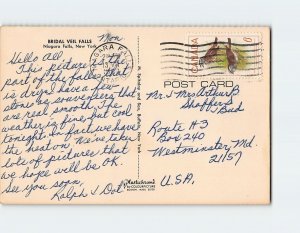 BRIDAL VEIL FALLS
Niagara Falls, New York
Mon
Hello all,
This picture is the
part of the falls that
is dry. I have a few
stone as souvenirs that
are real smooth. The
weather is fine, but cool
tonight. In fact we have
the heat on. We've taken
lots of pictures that
we hope will be OK.
See you soon,
Ralph & Dot
Plastichrome
NIAGARA FALLS
CANADA
6
POST CARD
Mr. & Mrs. Arthur
Shoffers
& Bud
Route #3
Box 240
Westminster, Md.
21157
U.S.A.